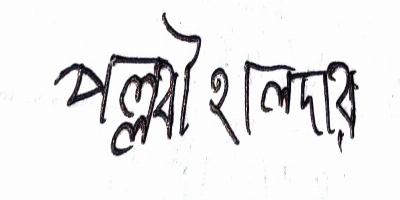 পল্লবী হালদার